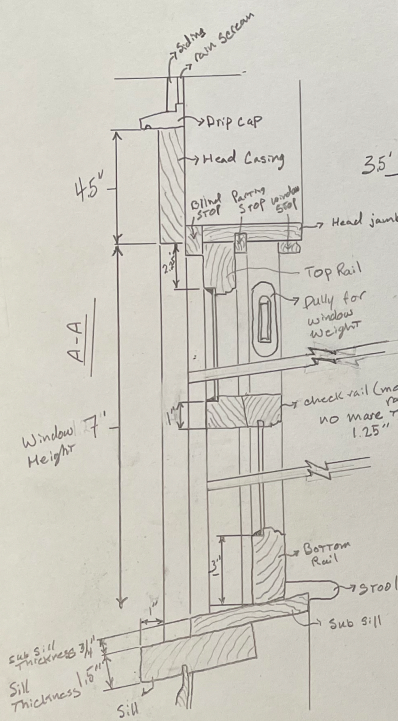 Siding
rain screan
Drip cap
Head Casing
4.5"
3.5"
Blind
STOP
Parting
STOP
window
STOP
Head jamb
2.25"
Top Rail
Pully for
window
Weight
A-A
1"
check rail (
no mare
1.25"
Window 7"
Height
3"
Bottom
Rail
STOOL
1"
Sub Sill
Sub Sill
Thickness 3/4"
Sill
Thickness 1.5"
Sill